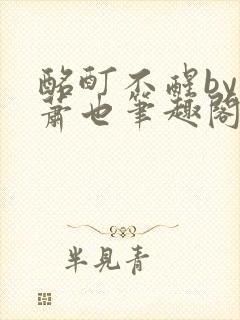 酩酊不醒by
萧也笔趣阁
半見青